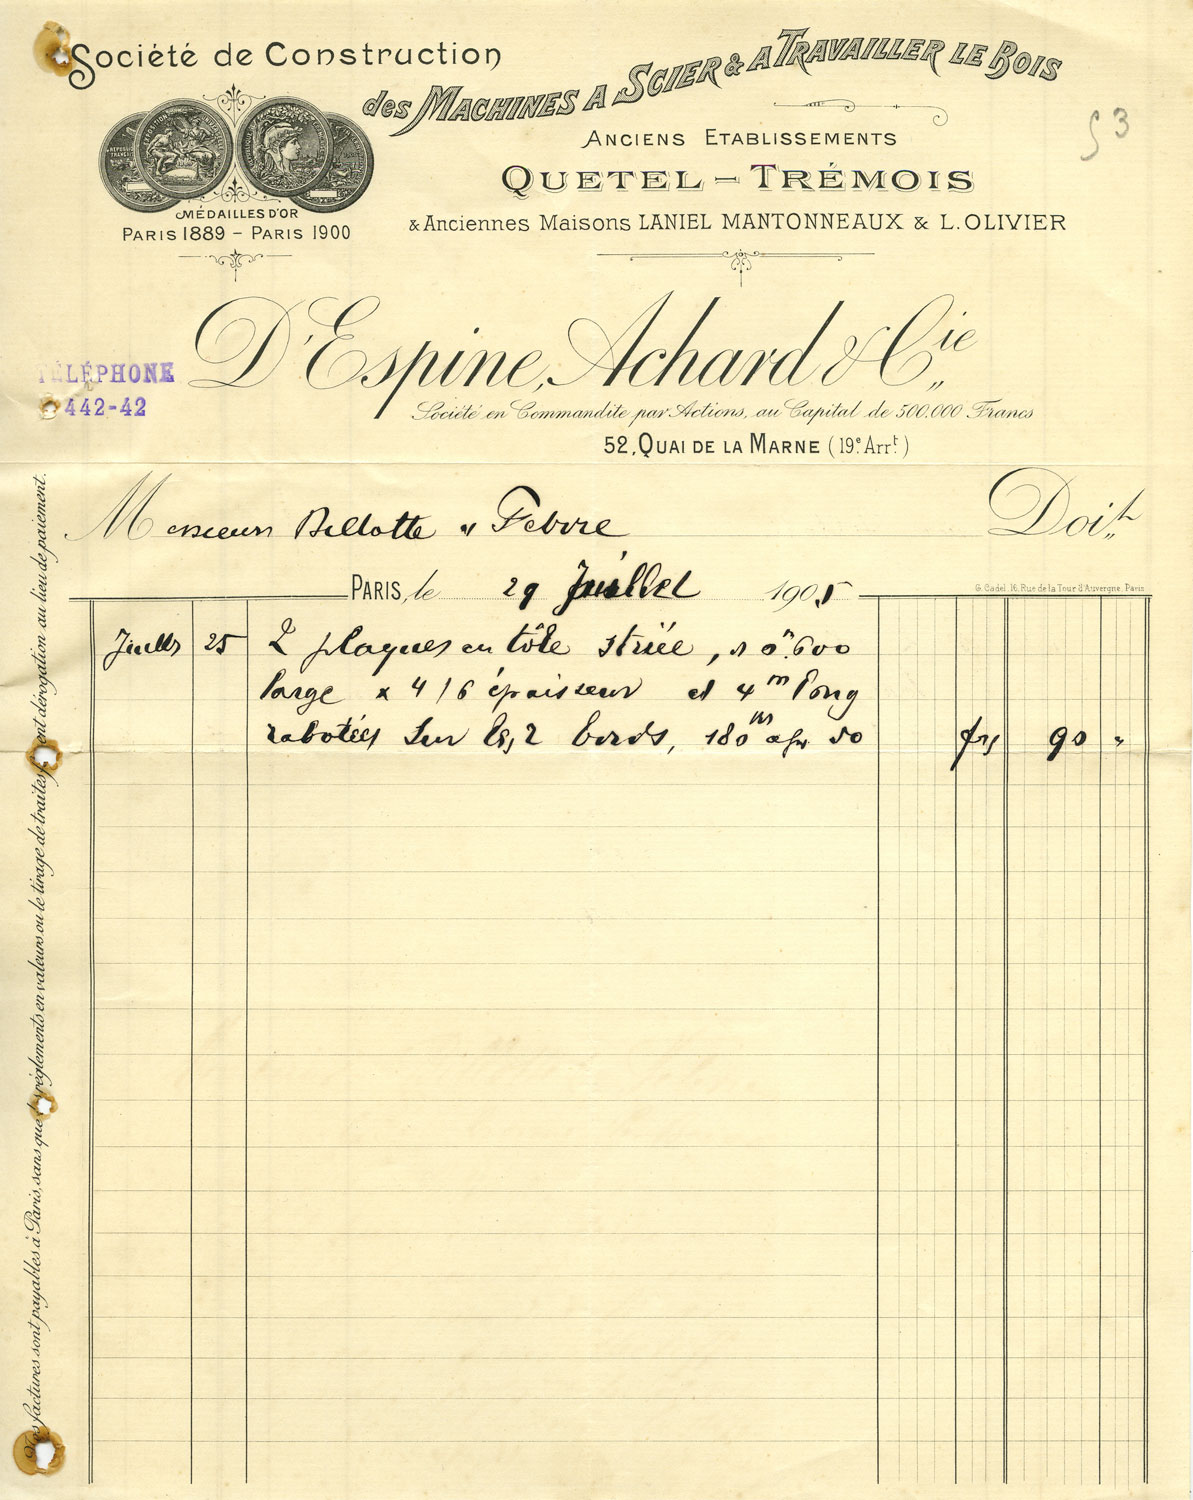 Société de Construction
des MACHINES A SCIER & A TRAVAILLER LE BOIS
53
ANCIENS ETABLISSEMENTS
QUETEL - TRÉMOIS
& Anciennes Maisons LANIEL MANTONNEAUX & L. OLIVIER
MÉDAILLES D'OR
PARIS 1889 - PARIS 1900
D'Espine, Achard & Cie
TÉLÉPHONE
442-42
Société en Commandite par Actions, au Capital de 500.000 Francs
52, QUAI DE LA MARNE (19e Arrt)
Messieurs Billotte & Febvre Doit
PARIS, le 29 Juillet 1905
G. Cadel, 16, Rue de la Tour d'Auvergne, Paris
Juillet 25 2 plaques en tôle striée, 0m.600
large x 4/6 épaisseur et 4m long
rabotées sur les 2 bords, 180 50 frs 90 "
Nos factures sont payables à Paris, sans que les règlements en valeurs ou le tirage de traites fassent dérogation au lieu de paiement.